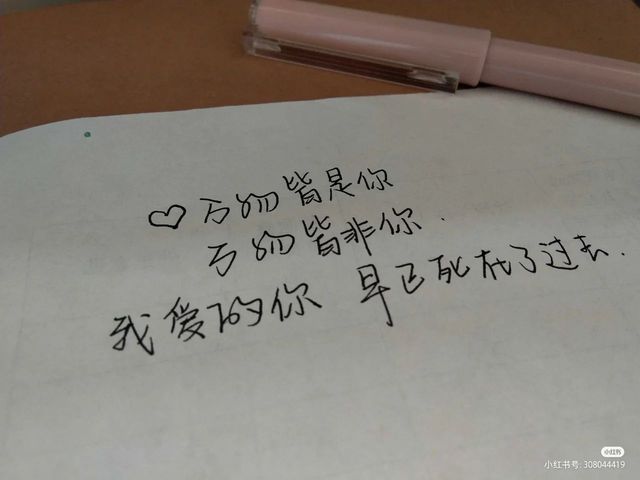 ♡万物皆是你
万物皆非你.
我爱的你 早已死在了过去.
小红书
小红书号: 308044419